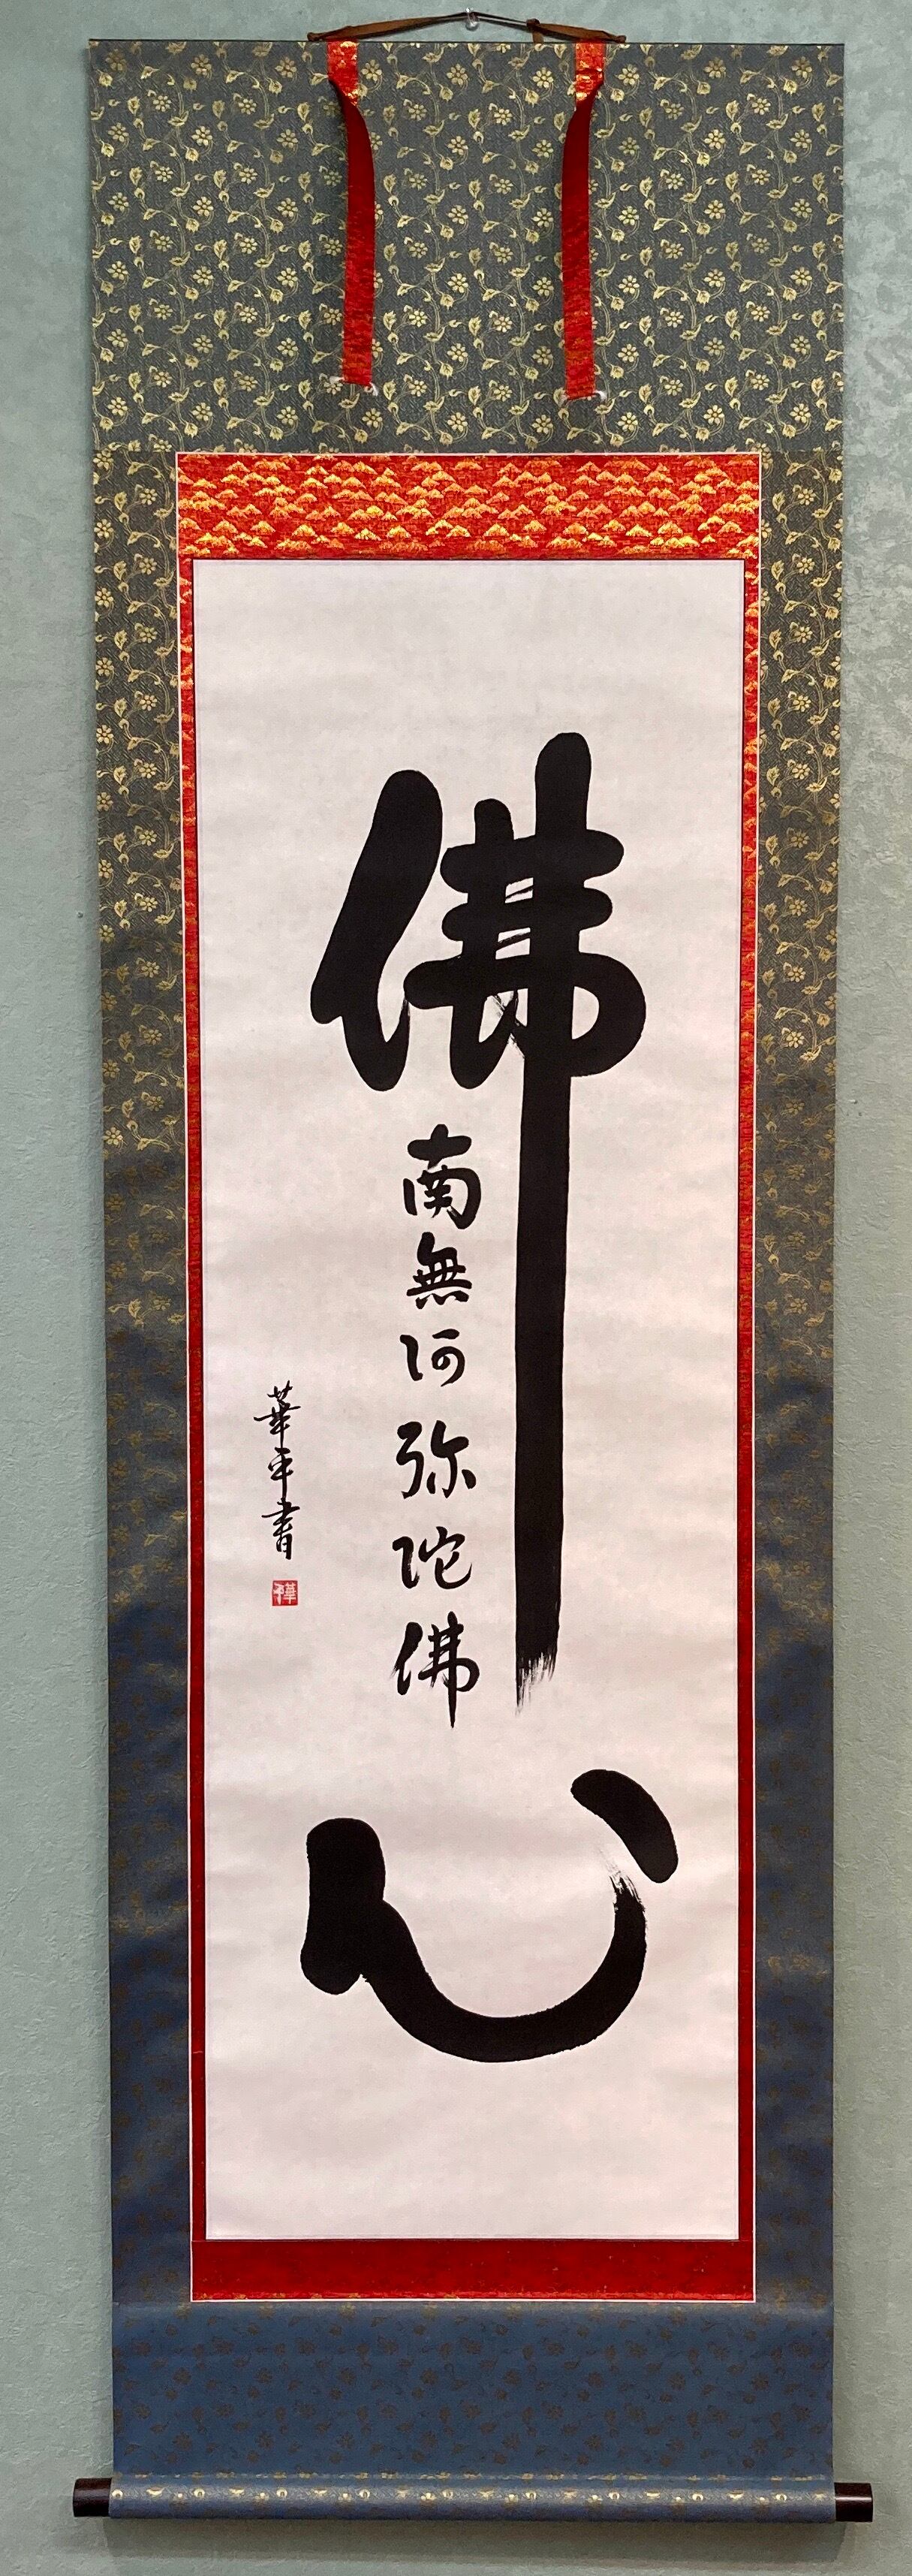 佛心
南無阿弥陀佛
華平書
華平